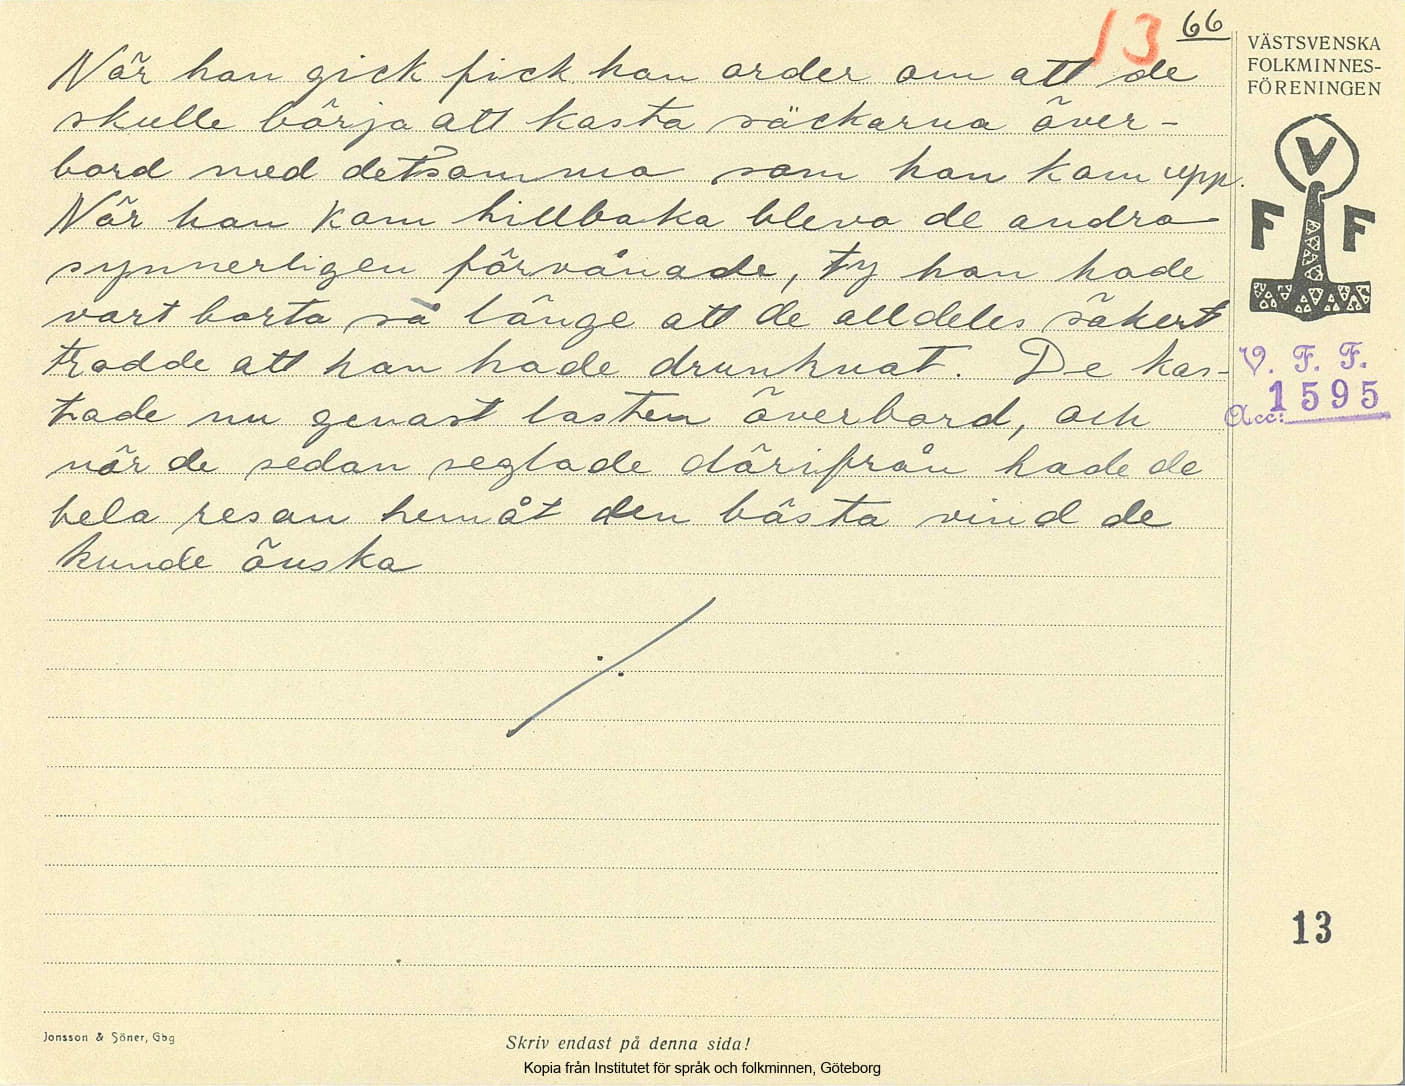 13 66
När han gick fick han order om att de
skulle börja att kasta säckarna över-
bord med detsamma som han kom upp.
När han kom tillbaka bleva de andra
synnerligen förvånade, ty han hade
vart borta så länge att de alldeles säkert
trodde att han hade drunknat. De kas-
tade nu genast lasten överbord, och
när de sedan seglade därifrån hade de
hela resan hemåt den bästa vind de
kunde önska
VÄSTSVENSKA
FOLKMINNES-
FÖRENINGEN
V
F F
V. F. F.
Acc: 1595
13
Jonsson & Söner, Gbg
Skriv endast på denna sida!
Kopia från Institutet för språk och folkminnen, Göteborg